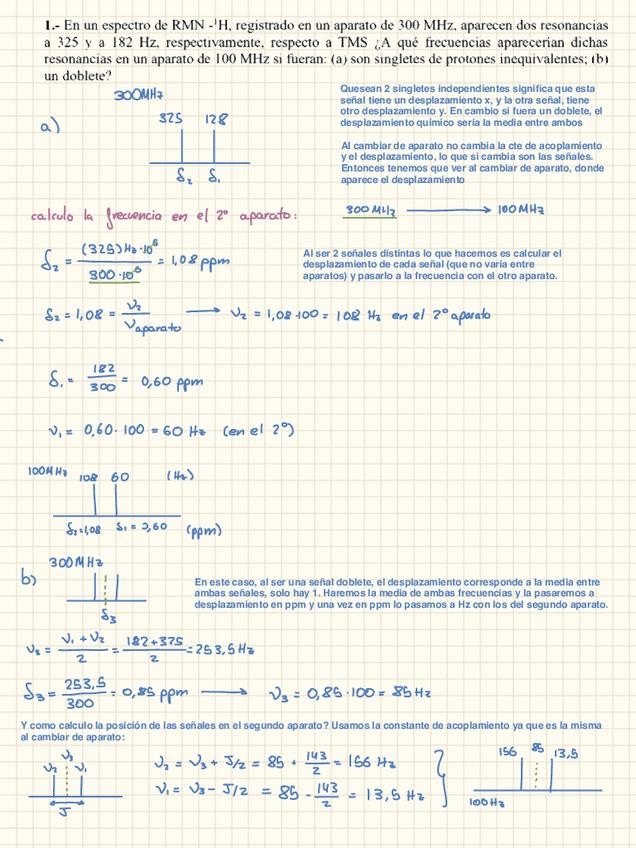 1.- En un espectro de RMN -¹H, registrado en un aparato de 300 MHz, aparecen dos resonancias
a 325 y a 182 Hz, respectivamente, respecto a TMS ¿A qué frecuencias aparecerian dichas
resonancias en un aparato de 100 MHz si fueran: (a) son singletes de protones inequivalentes; (b)
un doblete?
300MHz
Quesean 2 singletes independientes significa que esta
señal tiene un desplazamiento x, y la otra señal, tiene
otro desplazamiento y. En cambio si fuera un doblete, el
desplazamiento químico sería la media entre ambos
a)
325 128
δ₂ δ₁
Al cambiar de aparato no cambia la cte de acoplamiento
y el desplazamiento, lo que si cambia son las señales.
Entonces tenemos que ver al cambiar de aparato, donde
aparece el desplazamiento
300 MHz → 100 MHz
calculo la frecuencia en el 2º aparato:
δ₂ = (325)Hz·10⁶ / 300·10⁶ = 1,08 ppm
Al ser 2 señales distintas lo que hacemos es calcular el
desplazamiento de cada señal (que no varía entre
aparatos) y pasarlo a la frecuencia con el otro aparato.
δ₂ = 1,08 = ν₂ / νaparato → ν₂ = 1,08·100 = 108 Hz en el 2º aparato
δ₁ = 182 / 300 = 0,60 ppm
ν₁ = 0,60·100 = 60 Hz (en el 2º)
100MHz 108 60 (Hz)
δ₂=1,08 δ₁ = 0,60 (ppm)
300 MHz
b)
δ₃
En este caso, al ser una señal doblete, el desplazamiento corresponde a la media entre
ambas señales, solo hay 1. Haremos la media de ambas frecuencias y la pasaremos a
desplazamiento en ppm y una vez en ppm lo pasamos a Hz con los del segundo aparato.
ν₃ = ν₁ + ν₂ / 2 = 182+325 / 2 = 253,5 Hz
δ₃ = 253,5 / 300 = 0,85 ppm → ν₃ = 0,85·100 = 85 Hz
Y como calculo la posición de las señales en el segundo aparato? Usamos la constante de acoplamiento ya que es la misma
al cambiar de aparato:
ν₃
ν₂ ν₁
J
ν₂ = ν₃ + J/2 = 85 + 143/2 = 156 Hz
ν₁ = ν₃ - J/2 = 85 - 143/2 = 13,5 Hz
156 85 13,5
100Hz